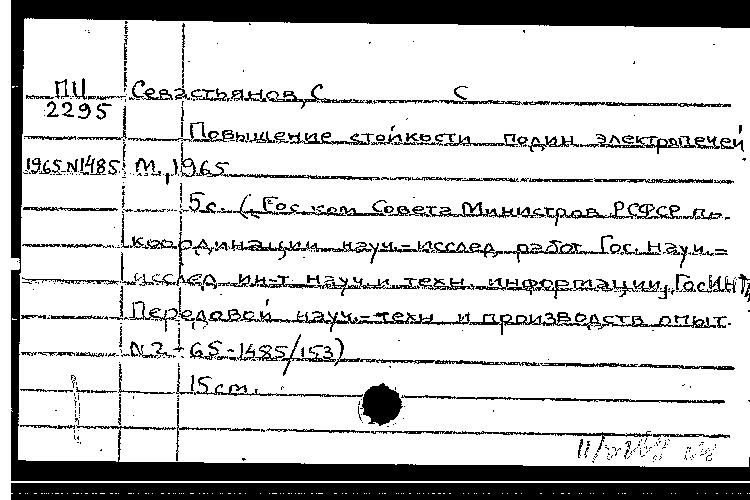 ПII
2295
Севастьянов, С С
Повышение стойкости подин электропечей
1965 N1485 М., 1965
5с. (Гос. ком Совета Министров РСФСР по
координации науч.-исслед работ Гос. науч.-
исслед ин-т науч и техн. информации, ГосИНТИ,
Передовой науч.-техн и производств опыт.
N2-65-1485/153)
15ст.
11/